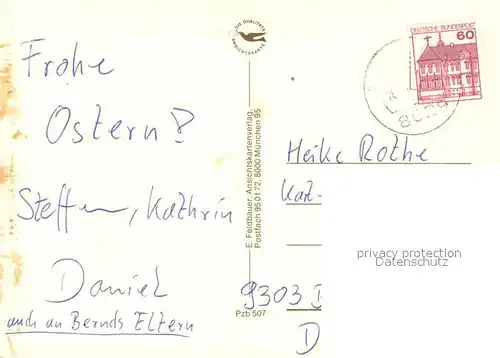 Frohe
Ostern!
Steffen, Kathrin
Daniel
auch an Bernds Eltern
DIE QUALITÄTS
ANSICHTSKARTE
E. Feldbauer, Ansichtskartenverlag,
Postfach 95 01 72, 8000 München 95
Pzb 507
DEUTSCHE BUNDESPOST
60
Heike Rothe
9303
D
privacy protection
Datenschutz